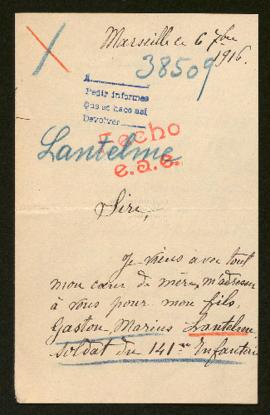 Marseille le 6 7bre
1916.
38509
A
Pedir informes
Que se hace así
Devolver
Hecho
e.a.s.
Lantelme
Sire,
Je viens avec tout
mon cœur de mère, m'adresser
à vous pour mon fils,
Gaston, Marius Lantelme
soldat du 141me Infanterie